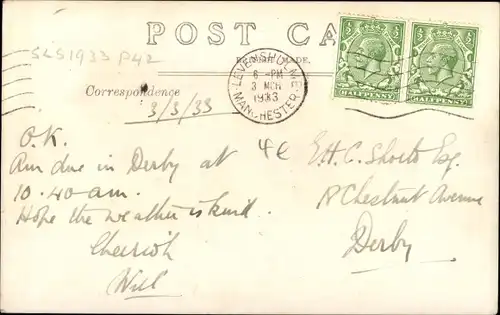 POST CA
SLS1933 P42
Correspondence
3/3/33
LEVENSHULME
6 - PM
3 MCH
1933
MANCHESTER
HALFPENNY
HALFPENNY
O.K.
Am due in Derby at
10.40 am.
Hope the weather is kind.
Cheerioh
Will
E.H.C. Shorto Esq.
Chestnut Avenue
Derby